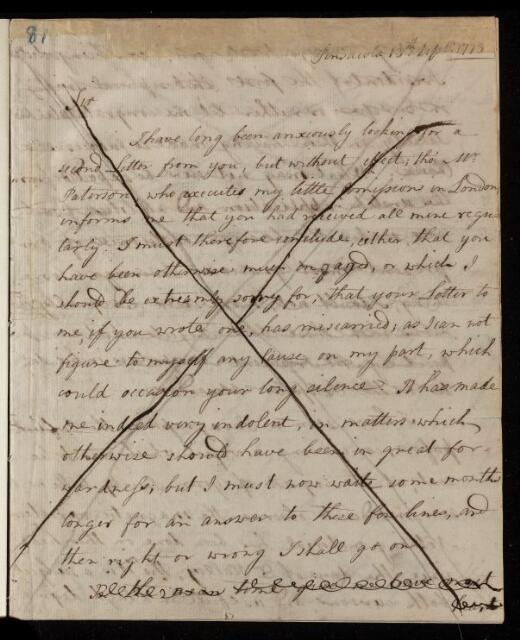 81
Pensacola 13th Septr. 1773
Sir
I have long been anxiously looking for a
second Letter from you, but without effect; tho' Mr.
Paterson, who executes my little Comissions in London
informs me that you had received all mine regu-
larly. I must therefore conclude, either that you
have been otherwise much engaged, or which I
should be extremely sorry for, that your Letter to
me, if you wrote one, has miscarried; as I can not
figure to myself any Cause on my part, which
could occasion your long silence. It has made
me indeed very indolent, in matters which
otherwise should have been in great for-
wardness; but I must now wait some months
longer for an answer to these few lines, and
then right or wrong I shall go on.